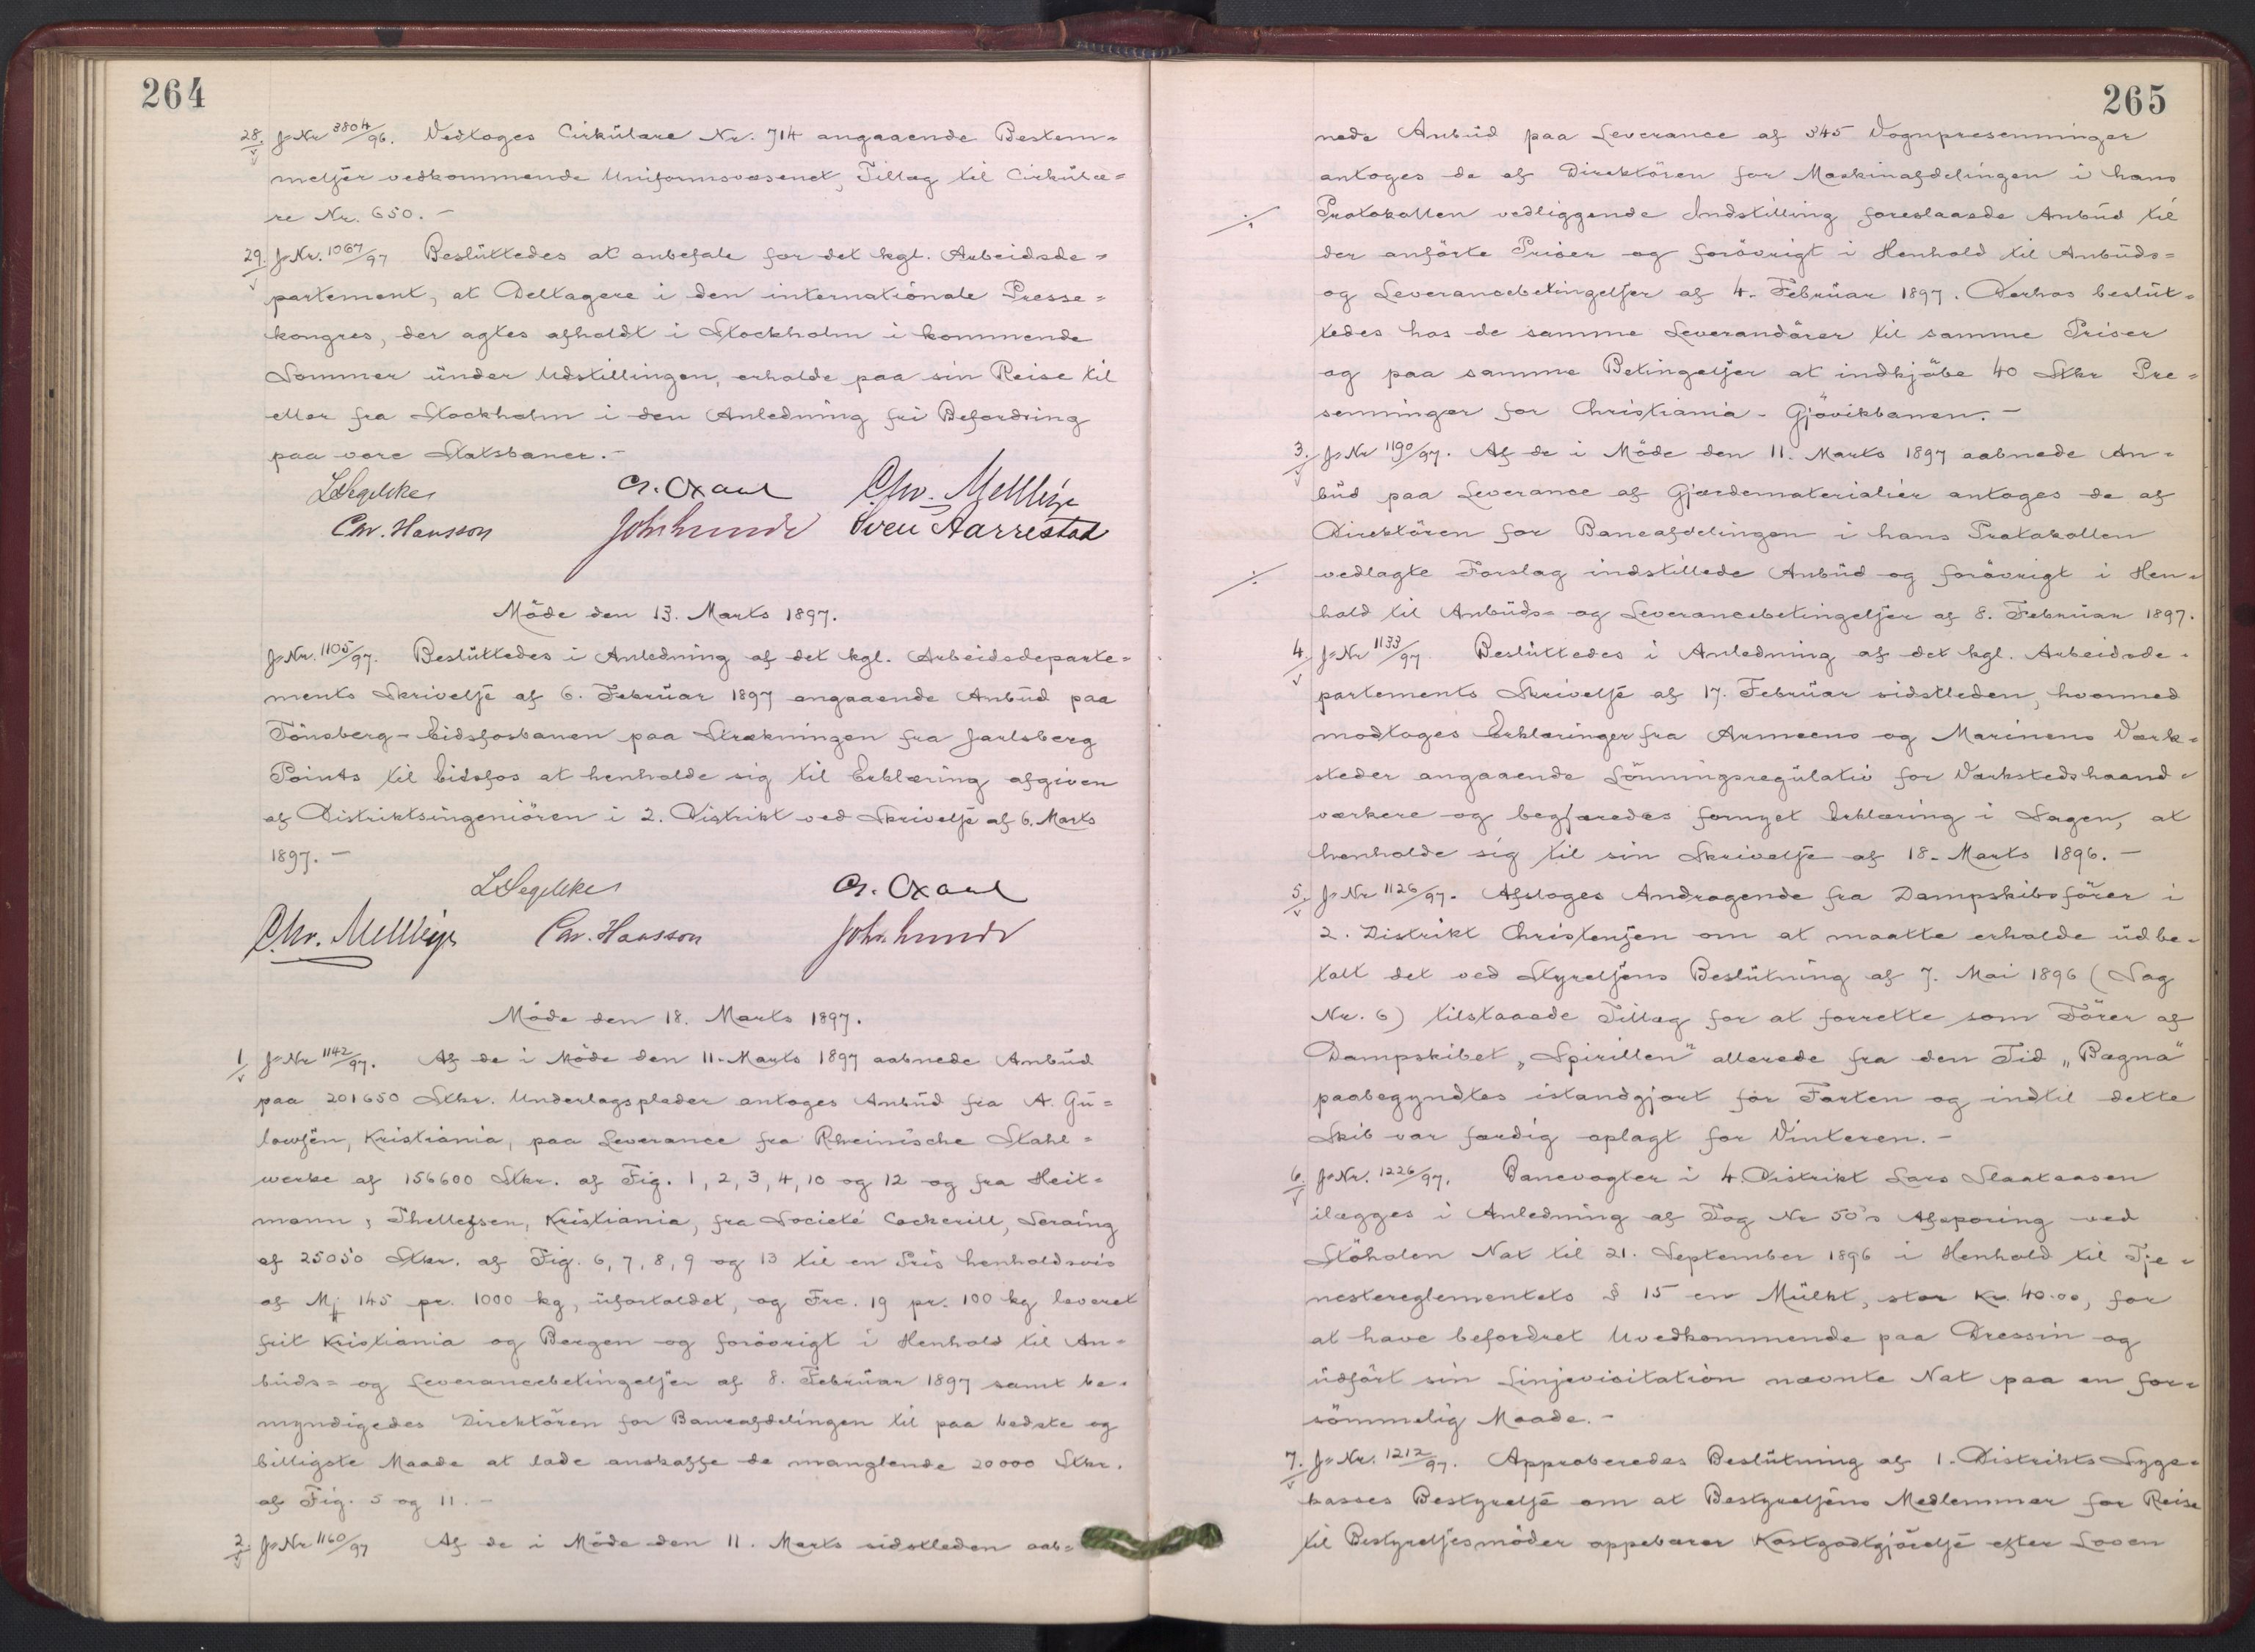 264
28. J=Nr 3804/96. Vedtoges Cirkülære Nr. 714 angaaende Bestem=
melser vedkommende Uniformsvæsenet, Tillæg til Cirkülæ=
re Nr. 650. –
29. J=Nr. 1067/97 Beslüttedes at anbefale for det kgl. Arbeidsde=
partement, at Deltagere i den internationale Presse=
kongres, der agtes afholdt i Stockholm i kommende
Sommer ünder Udstillingen, erholde paa sin Reise til
eller fra Stockholm i den Anledning fri Befordring
paa vore Statsbaner. –
LSegelcke Chr. Mellbye
Chr. Hansson Joh. Lunde Sven Aarrestad
Möde den 13. Marts 1897.
J=Nr. 1105/97. Beslüttedes i Anledning af det kgl. Arbeidsdeparte=
ments Skrivelse af 6. Februar 1897 angaaende Anbüd paa
Tönsberg-Eidsfosbanen paa Strækningen fra Jarlsberg
Points til Eidsfos at henholde sig til Erklæring afgiven
af Distriktsingeniören i 2. Distrikt ved Skrivelse af 6. Marts
1897. –
LSegelcke
Chr. Mellbye Chr. Hansson Joh. Lunde
Möde den 18. Marts 1897.
1. J=Nr 1142/97. Af de i Möde den 11. Marts 1897 aabnede Anbüd
paa 201650 Stkr. Underlagsplader antoges Anbüd fra A. Gü=
lowsen, Kristiania, paa Leverance fra Rheinische Stahl=
werke af 156600 Stkr. af Fig. 1, 2, 3, 4, 10 og 12 og fra Heit=
mann, Thellefsen, Kristiania, fra Societé Cockerill, Seraing
af 25050 Stkr. af Fig. 6, 7, 8, 9 og 13 til en Pris henholdsvis
af Mk 145 pr. 1000 kg, üfortoldet, og Frc. 19 pr. 100 kg leveret
frit Kristiania og Bergen og forövrigt i Henhold til An=
büds= og Leverancebetingelser af 8. Februar 1897 samt be=
myndigedes Direktören for Baneafdelingen til paa bedste og
billigste Maade at lade anskaffe de manglende 20000 Stkr.
af Fig. 5 og 11. –
2. J=Nr 1160/97 Af de i Möde den 11. Marts sidstleden aab=
265
nede Anbüd paa Leverance af 345 Vognpresenninger
antoges de af Direktören for Maskinafdelingen i hans
Protokollen vedliggende Indstilling foreslaaede Anbüd til
der anförte Priser og forövrigt i Henhold til Anbüds=
og Leverancebetingelser af 4. Februar 1897. Derhos beslüt=
tedes hos de samme Leverandörer til samme Priser
og paa samme Betingelser at indkjöbe 40 Stkr Pre=
senninger for Christiania-Gjövikbanen. –
3. J=Nr 1190/97. Af de i Möde den 11. Marts 1897 aabnede An=
büd paa Leverance af Gjærdematerialier antoges de af
Direktören for Baneafdelingen i hans Protokollen
vedlagte Forslag indstillede Anbüd og forövrigt i Hen=
hold til Anbüds= og Leverancebetingelser af 8. Februar 1897.
4. J=Nr 1133/97 Beslüttedes i Anledning af det kgl. Arbeidsde=
partements Skrivelse af 17. Februar sidstleden, hvormed
modtoges Erklæringer fra Armeens og Marinens Værk=
steder angaaende Lönningsregulativ for Værkstedshaand=
værkere og begjæredes fornyet Erklæring i Sagen, at
henholde sig til sin Skrivelse af 18. Marts 1896. –
5. J=Nr 1126/97. Afsloges Andragende fra Dampskibsförer i
2. Distrikt Christensen om at maatte erholde üdbe=
talt det ved Styrelsens Beslütning af 7. Mai 1896 (Sag
Nr. 6) tilstaaede Tillæg for at forrette som Förer af
Dampskibet „Spirillen" allerede fra den Tid „Bægna"
paabegyndtes istandgjort för Farten og indtil dette
Skib var færdig oplagt for Vinteren. –
6. J=Nr. 1226/97. Banevogter i 4. Distrikt Lars Slaataasen
ilægges i Anledning af Tog Nr 50's Afsporing ved
Stöholen Nat til 21. September 1896 i Henhold til Tje=
nestereglementets § 15 en Mülkt, stor Kr. 40.00, for
at have befordret Uvedkommende paa Dressin og
üdfört sin Linjevisitation nævnte Nat paa en for=
sömmelig Maade. –
7. J=Nr. 1212/97. Approberedes Beslütning af 1. Distrikts Syge=
kasses Bestyrelse om at Bestyrelsens Medlemmer for Reise
til Bestyrelsesmöder oppebærer Kostgodtgjörelse efter Loven